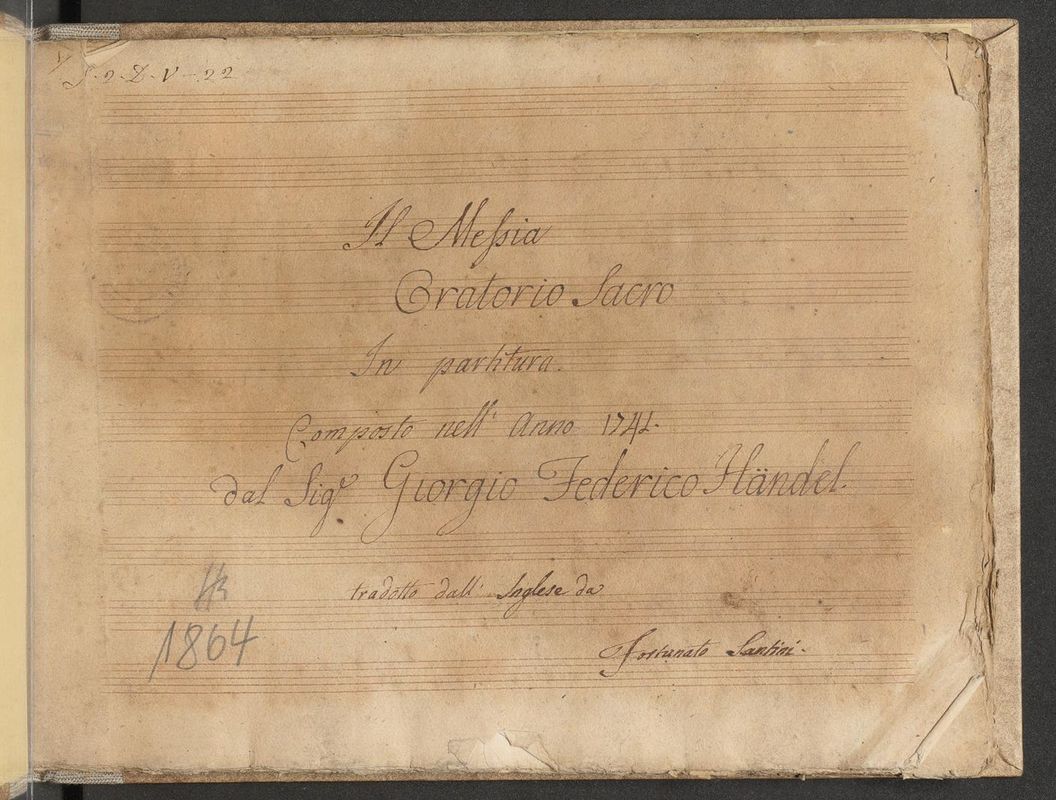 S. 2. D. V - 22
Il Messia
Oratorio Sacro
In partitura.
Composto nell' Anno 1741.
dal Sigr Giorgio Federico Händel.
tradotto dall' Inglese da
Fortunato Santini.
1864